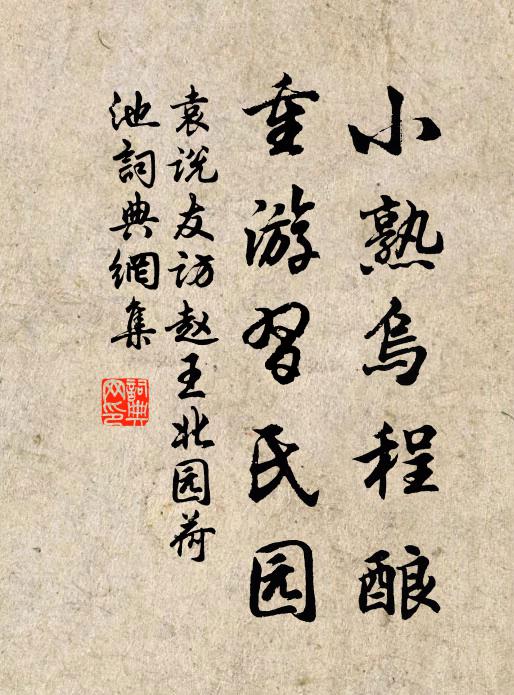 小熟乌程酿
重游习氏园
袁说友访赵王北园荷
池詞典網集
詞典
网印